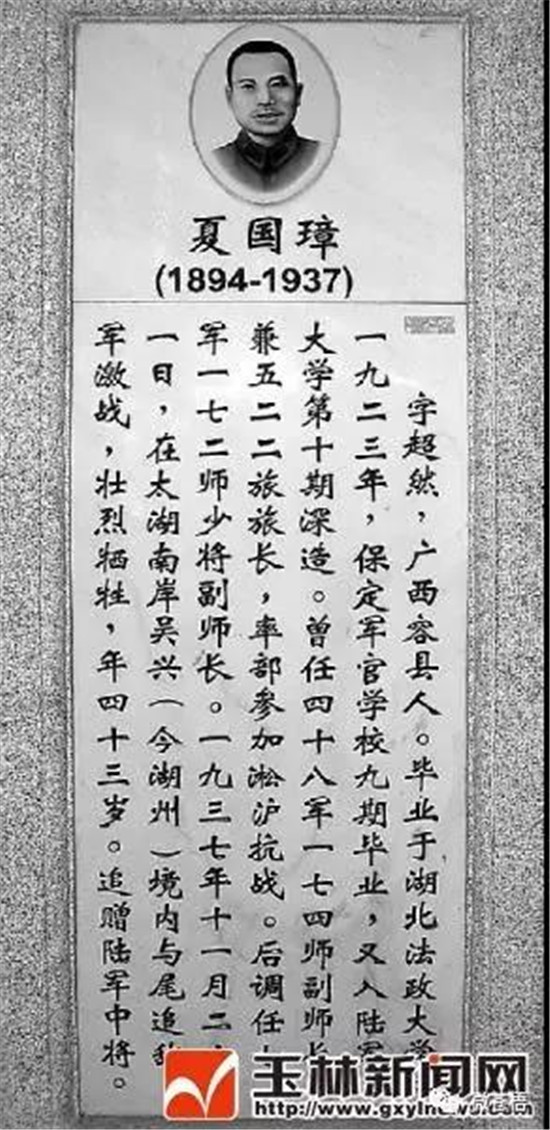 夏国璋
(1894-1937)
字超然，广西容县人。毕业于湖北法政大学
一九二三年，保定军官学校九期毕业，又入陆军
大学第十期深造。曾任四十八军一七四师副师长
兼五二二旅旅长，率部参加淞沪抗战。后调任
军一七二师少将副师长。一九三七年十一月二
一日，在太湖南岸吴兴（今湖州）境内与尾追敌
军激战，壮烈牺牲，年四十三岁。追赠陆军中将。
玉林新闻网
http://www.gxylnews.com